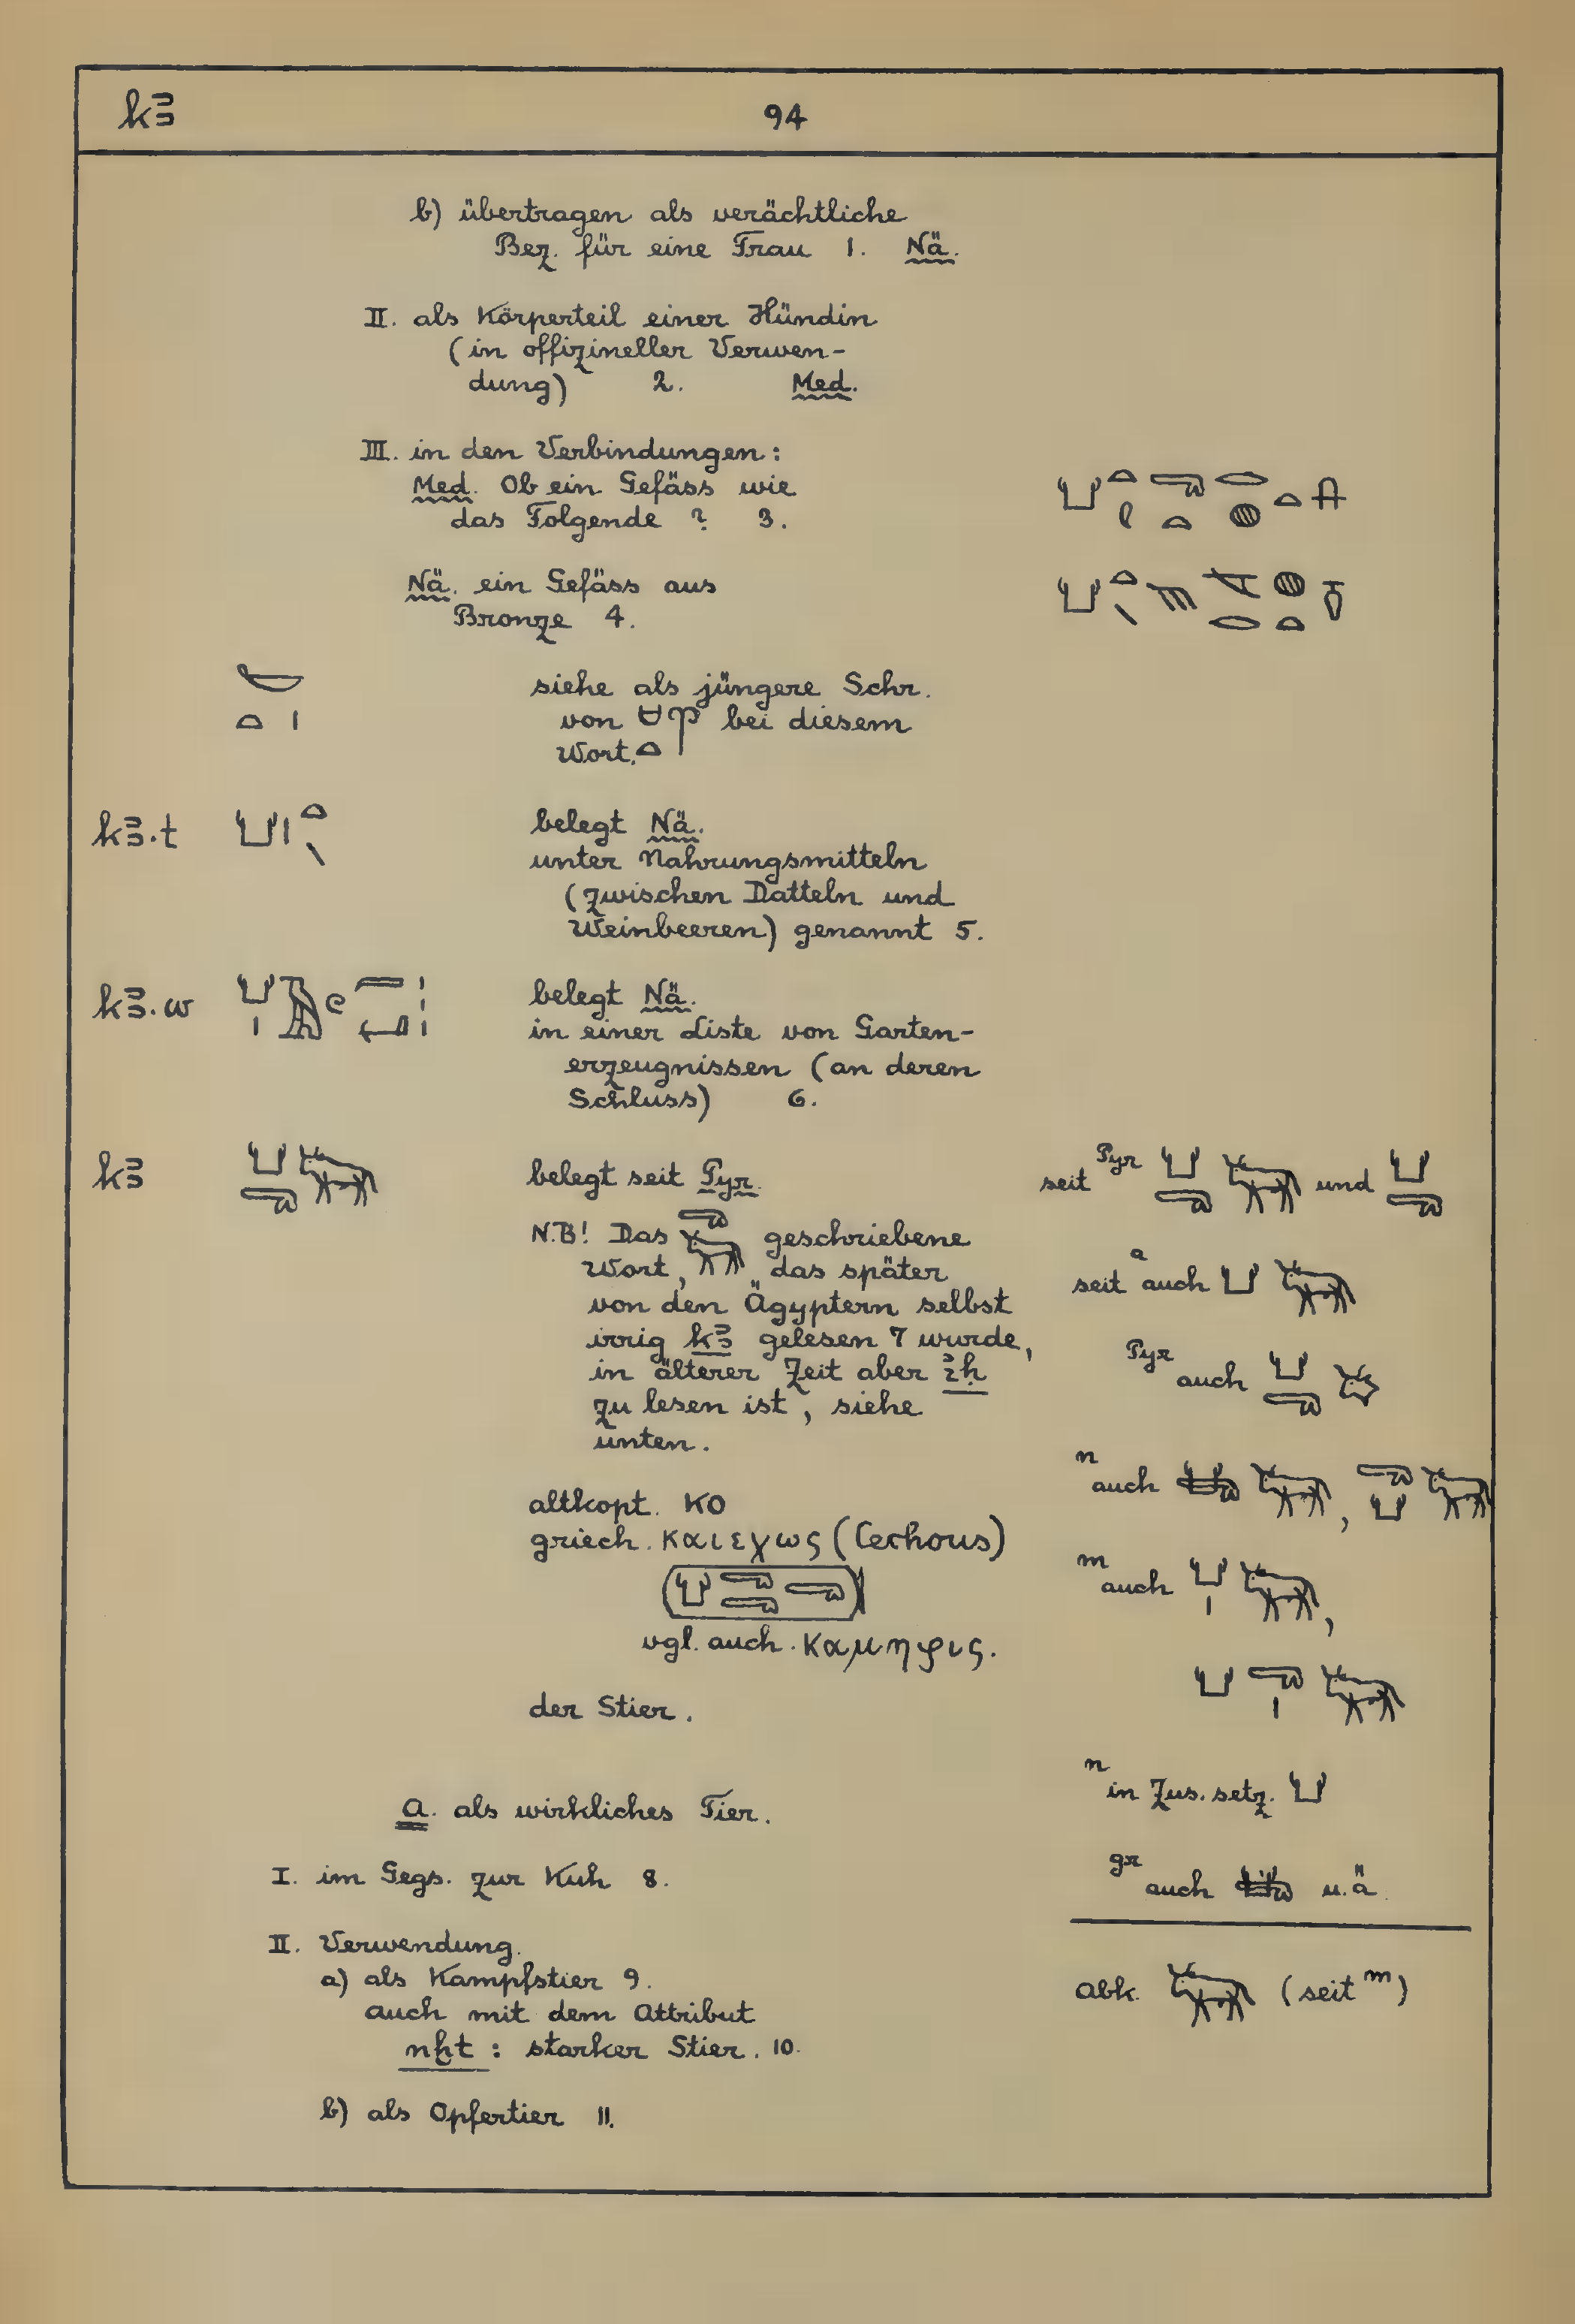 k3
94
b) übertragen als verächtliche
Bez. für eine Frau 1. Nä.
II. als Körperteil einer Hündin
(in offizineller Verwen-
dung) 2. Med.
III. in den Verbindungen:
Med. Ob ein Gefäss wie
das Folgende? 3.
Nä. ein Gefäss aus
Bronze 4.
siehe als jüngere Schr.
von bei diesem
Wort.
kꜣ.t
belegt Nä.
unter Nahrungsmitteln
(zwischen Datteln und
Weinbeeren) genannt 5.
kꜣ.w
belegt Nä.
in einer Liste von Garten-
erzeugnissen (an deren
Schluss) 6.
kꜣ
belegt seit Pyr.
N.B! Das geschriebene
Wort, das später
von den Ägyptern selbst
irrig kꜣ gelesen 7 wurde,
in älterer Zeit aber iḥ
zu lesen ist, siehe
unten.
altkopt. ΚΟ
griech. Καιεχως (Cechous)
vgl. auch. Καμηφις.
der Stier.
seit Pyr und
seit a auch
Pyr auch
n auch ,
m auch ,
n in Zus. setz.
gr auch u.ä.
abk. (seit m)
A. als wirkliches Tier.
I. im Gegs. zur Kuh 8.
II. Verwendung.
a) als Kampfstier 9.
auch mit dem Attribut
nḫt : starker Stier. 10.
b) als Opfertier 11.